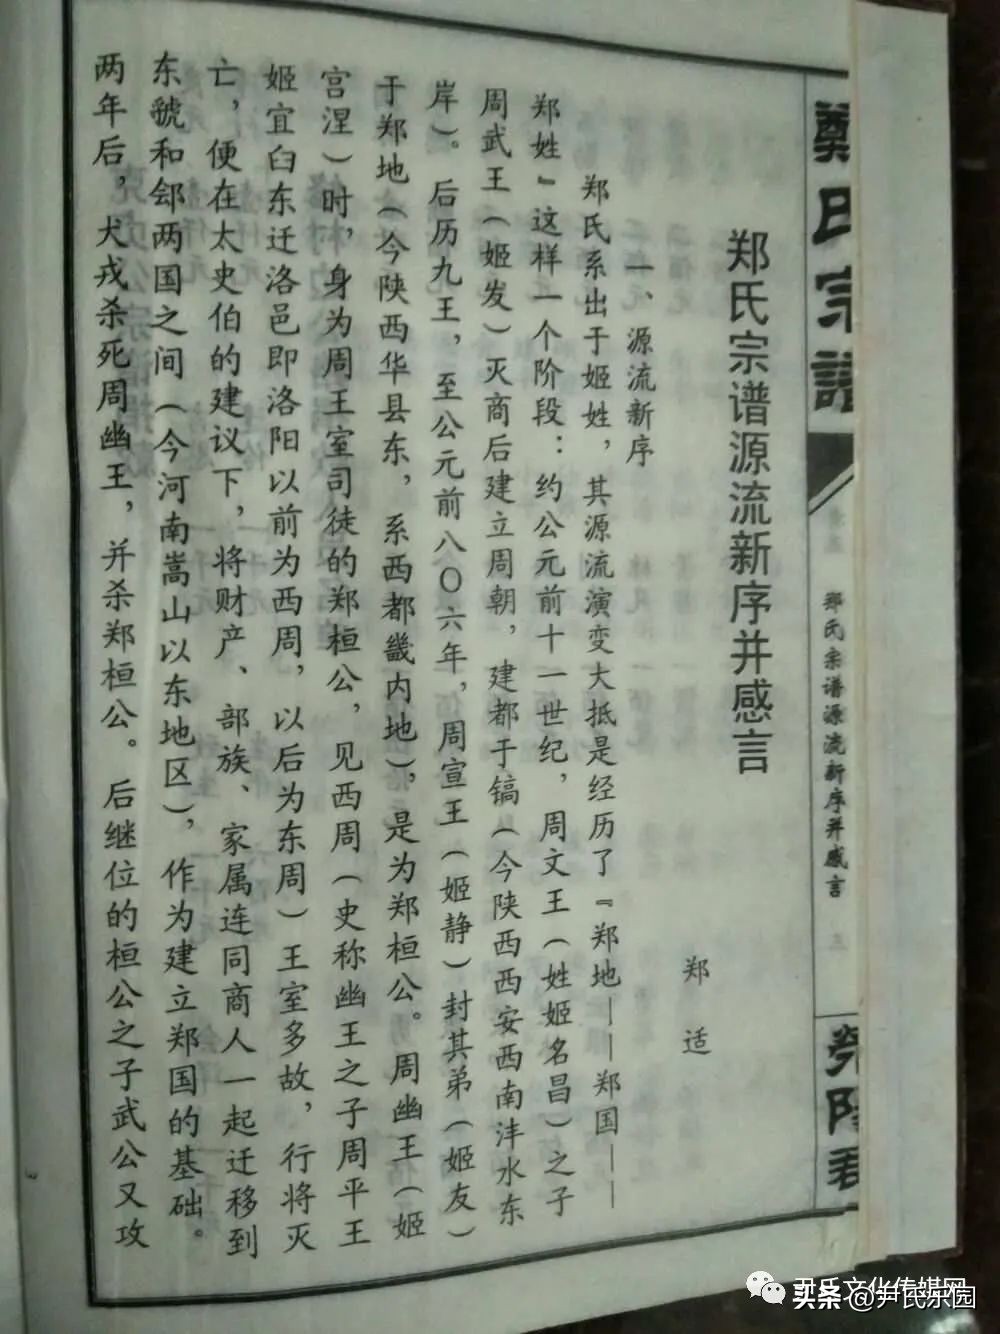 鄭氏宗譜
郑氏宗谱源流新序并感言
三
郑氏宗谱源流新序并感言
郑 适
一、源流新序
郑氏系出于姬姓，其源流演变大抵是经历了『郑地——郑国——
郑姓』这样一个阶段：约公元前十一世纪，周文王（姓姬名昌）之子
周武王（姬发）灭商后建立周朝，建都于镐（今陕西西安西南沣水东
岸）。后历九王，至公元前八〇六年，周宣王（姬静）封其弟（姬友）
于郑地（今陕西华县东，系西都畿内地），是为郑桓公。周幽王（姬
宫涅）时，身为周王室司徒的郑桓公，见西周（史称幽王之子周平王
姬宜臼东迁洛邑即洛阳以前为西周，以后为东周）王室多故，行将灭
亡，便在太史伯的建议下，将财产、部族、家属连同商人一起迁移到
东虢和郐两国之间（今河南嵩山以东地区），作为建立郑国的基础。
两年后，犬戎杀死周幽王，并杀郑桓公。后继位的桓公之子武公又攻
头条 @尹氏乐园
尹氏文化传媒网